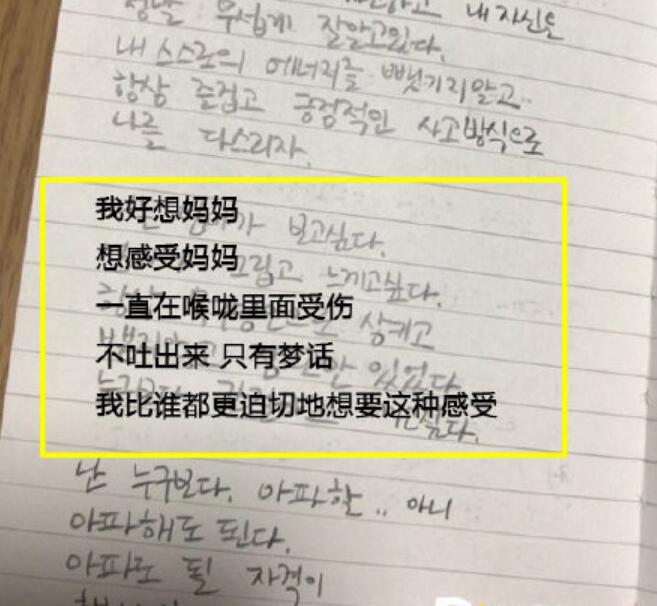 하고 내 자신은
정말 무섭게 잘알고있다.
내 스스로의 에너지를 뺏기지않고..
항상 즐겁고 긍정적인 사고방식으로
나를 다스리자.
我好想妈妈
보고싶다.
想感受妈妈
그립고 느끼고싶다.
一直在喉咙里面受伤
삼키고
不吐出来 只有梦话
있었다
我比谁都更迫切地想要这种感受
싶다.
난 누구보다. 아파할.. 아니
아파해도 된다.
아파도 될 자격이